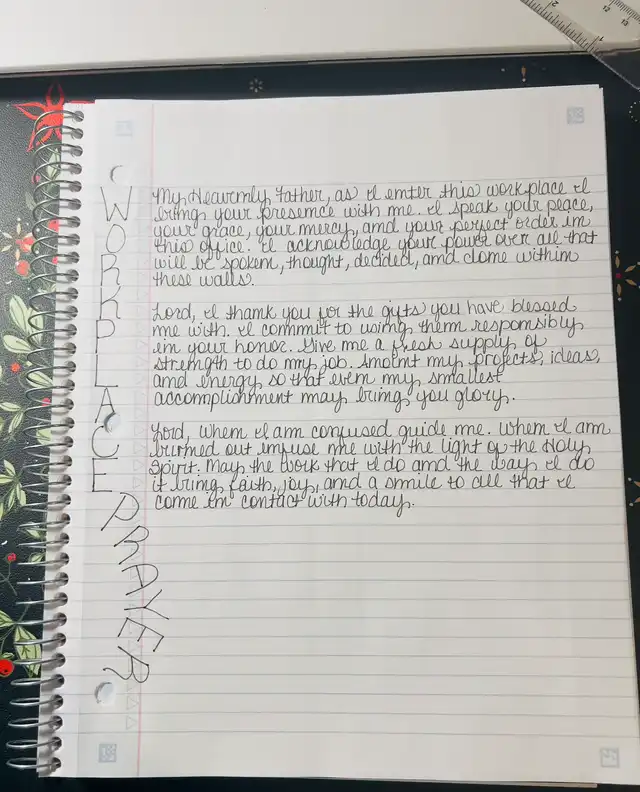 WORKPLACE PRAYER
My Heavenly Father, as I enter this workplace I
bring your presence with me. I speak your peace,
your grace, your mercy, and your perfect order in
this office. I acknowledge your power over all that
will be spoken, thought, decided, and done within
these walls.
Lord, I thank you for the gifts you have blessed
me with. I commit to using them responsibly
in your honor. Give me a fresh supply of
strength to do my job. Anoint my projects, ideas,
and energy so that even my smallest
accomplishment may bring you glory.
Lord, when I am confused guide me. When I am
burned out infuse me with the light of the Holy
Spirit. May the work that I do and the way I do
it bring faith, joy, and a smile to all that I
come in contact with today.